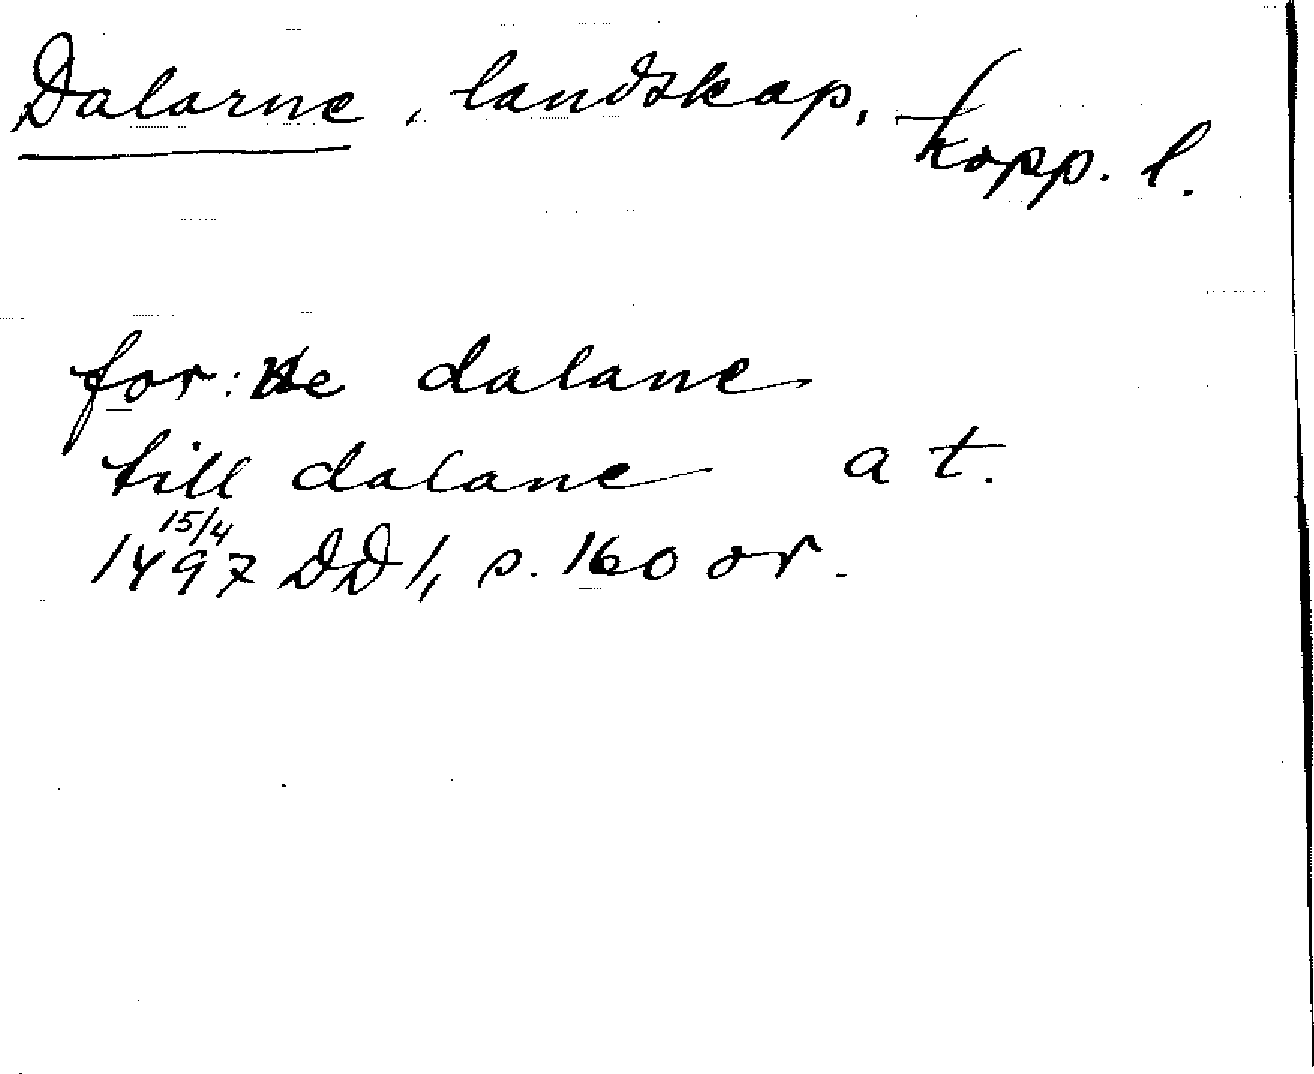 Dalarne, landskap, Kopp. l.
for: ne dalane
till dalane at.
1497 15/4 DD 1, s. 160 or.